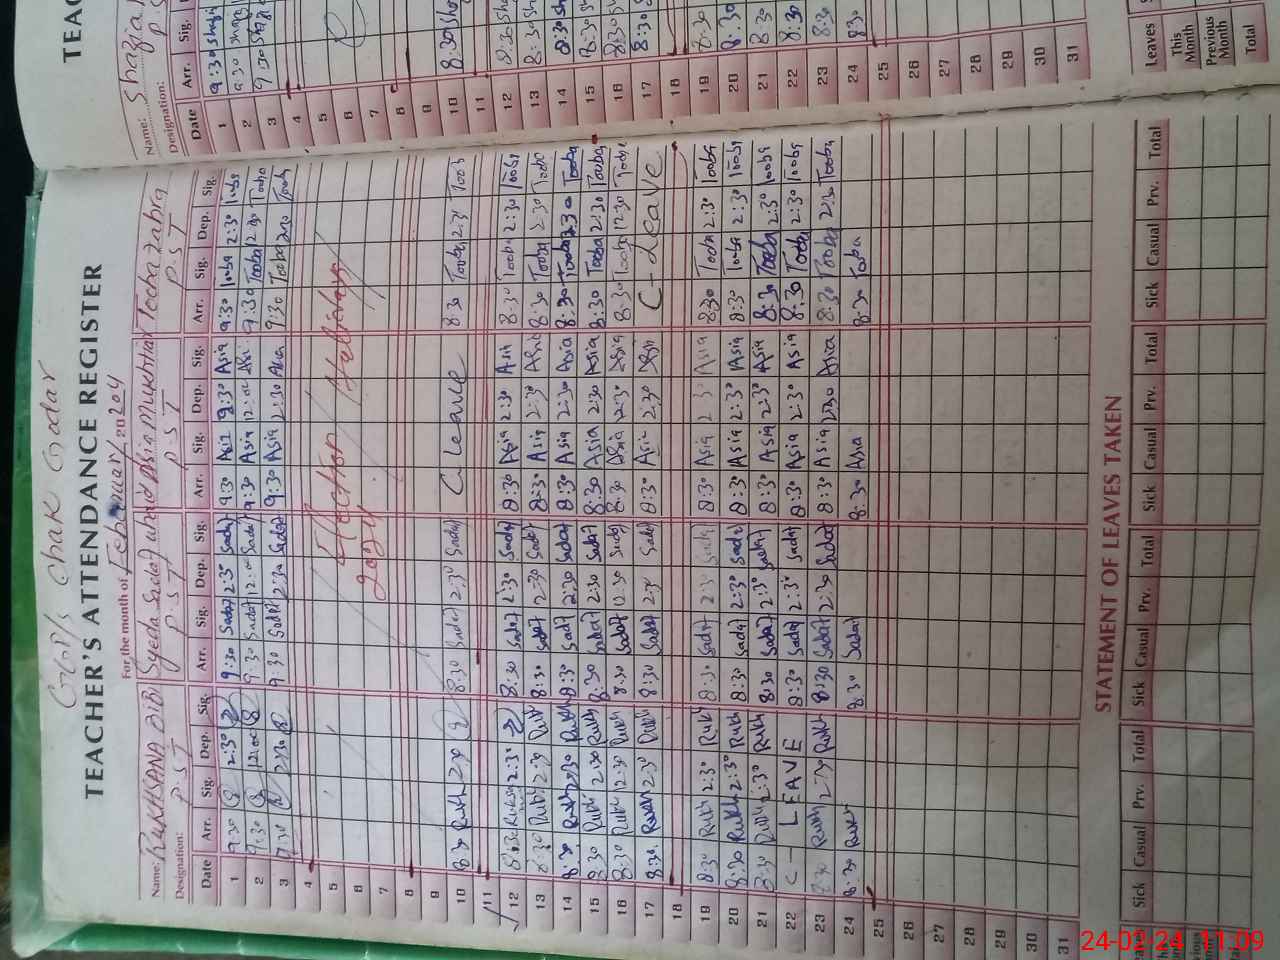 GGP/S Chak Gadar
TEACHER'S ATTENDANCE REGISTER
For the month of February 2024
Name: RUKHSANA BIBI Syeda Sadaf Asia Mukhtiar Tooba Zahra
Designation: P.S.T P.S.T P.S.T P.S.T
Date Arr. Sig. Dep. Sig. Arr. Sig. Dep. Sig. Arr. Sig. Dep. Sig. Arr. Sig. Dep. Sig.
1 9:30 2:30 9:30 Sadaf 2:30 Sadaf 9:30 Asia Asia 9:30 Tooba 2:30 Tooba
2 9:30 12:00 9:30 Sadaf 12:00 Sadaf 9:30 Asia 12:00 9:30 Tooba Tooba
3 9:30 2:30 9:30 Sadaf 2:30 Sadaf 9:30 Asia 2:30 Asia 9:30 Tooba 2:30 Tooba
4
5 Election Holidays
6 2024
7
8
9
10 8:30 Rukh 2:30 8:30 Sadaf 2:30 Sadaf C Leave 8:30 Tooba 2:30 Toob
11
12 8:30 Rukh 2:30 8:30 Sadaf 2:30 Sadaf 8:30 Asia 2:30 Asia 8:30 Tooba 2:30 Tooba
13 8:30 Rukh 2:30 Rukh 8:30 Sadaf 2:30 Sadaf 8:30 Asia 2:30 Asia 8:30 Tooba 2:30 Tooba
14 8:30 Rukh 2:30 Rukh 8:30 Sadaf 2:30 Sadaf 8:30 Asia 2:30 Asia 8:30 Tooba 2:30 Tooba
15 8:30 Rukh 2:30 Rukh 8:30 Sadaf 2:30 Sadaf 8:30 Asia 2:30 Asia 8:30 Tooba 2:30 Tooba
16 8:30 Rukh 12:30 Rukh 8:30 Sadaf 12:30 Sadaf 8:30 Asia 12:30 Asia 8:30 Tooba 12:30 Tooba
17 8:30 Rukh 2:30 Rukh 8:30 Sadaf 2:30 Sadaf 8:30 Asia 2:30 Asia C-Leave
18
19 8:30 Rukh 2:30 Rukh 8:30 Sadaf 2:30 Sadaf 8:30 Asia 2:30 Asia 8:30 Tooba 2:30 Tooba
20 8:30 Rukh 2:30 Rukh 8:30 Sadaf 2:30 Sadaf 8:30 Asia 2:30 Asia 8:30 Tooba 2:30 Tooba
21 8:30 Rukh 2:30 Rukh 8:30 Sadaf 2:30 Sadaf 8:30 Asia 2:30 Asia 8:30 Tooba 2:30 Tooba
22 C - LEAVE 8:30 Sadaf 2:30 Sadaf 8:30 Asia 2:30 Asia 8:30 Tooba 2:30 Tooba
23 8:30 Rukh 2:30 Rukh 8:30 Sadaf 2:30 Sadaf 8:30 Asia 2:30 Asia 8:30 Tooba 2:30 Tooba
24 8:30 Rukh 8:30 Sadaf 8:30 Asia 8:30 Tooba
25
26
27
28
29
30
31
STATEMENT OF LEAVES TAKEN
Sick Casual Prv. Total Sick Casual Prv. Total Sick Casual Prv. Total Sick Casual Prv. Total
TEAC
Name: Shazia
Designation: P.S
Date Arr. Sig.
1 9:30
2 9:30
3 9:30
4
5
6
7
8
9
10 8:30
11
12 8:30
13 8:30
14 8:30
15 8:30
16 8:30
17 8:30
18
19 8:30
20 8:30
21 8:30
22 8:30
23 8:30
24 8:30
25
26
27
28
29
30
31
Leaves
This Month
Previous Month
Total
24-02-24 11:09